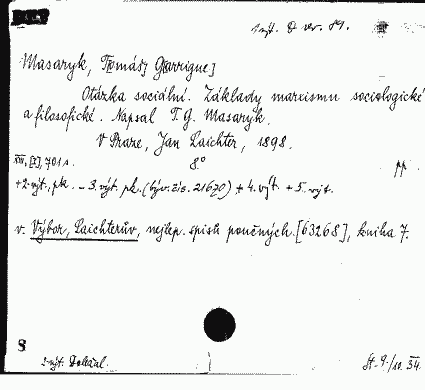 1 výt. D ver. 89.
Masaryk, Tomáš G[arrigue]
Otázka sociální. Základy marxismu sociologické
a filosofické. Napsal T. G. Masaryk.
V Praze, Jan Laichter, 1898.
XIII, [I], 701 s. 8°
+2. výt., pk. – 3. výt. pk. (býv. čís. 21620) + 4. výt. + 5. výt.
v. Výbor, Laichterův, nejlep. spisů poučných [63268], kniha 7.
8
2. výt. St. 9./10. 34.